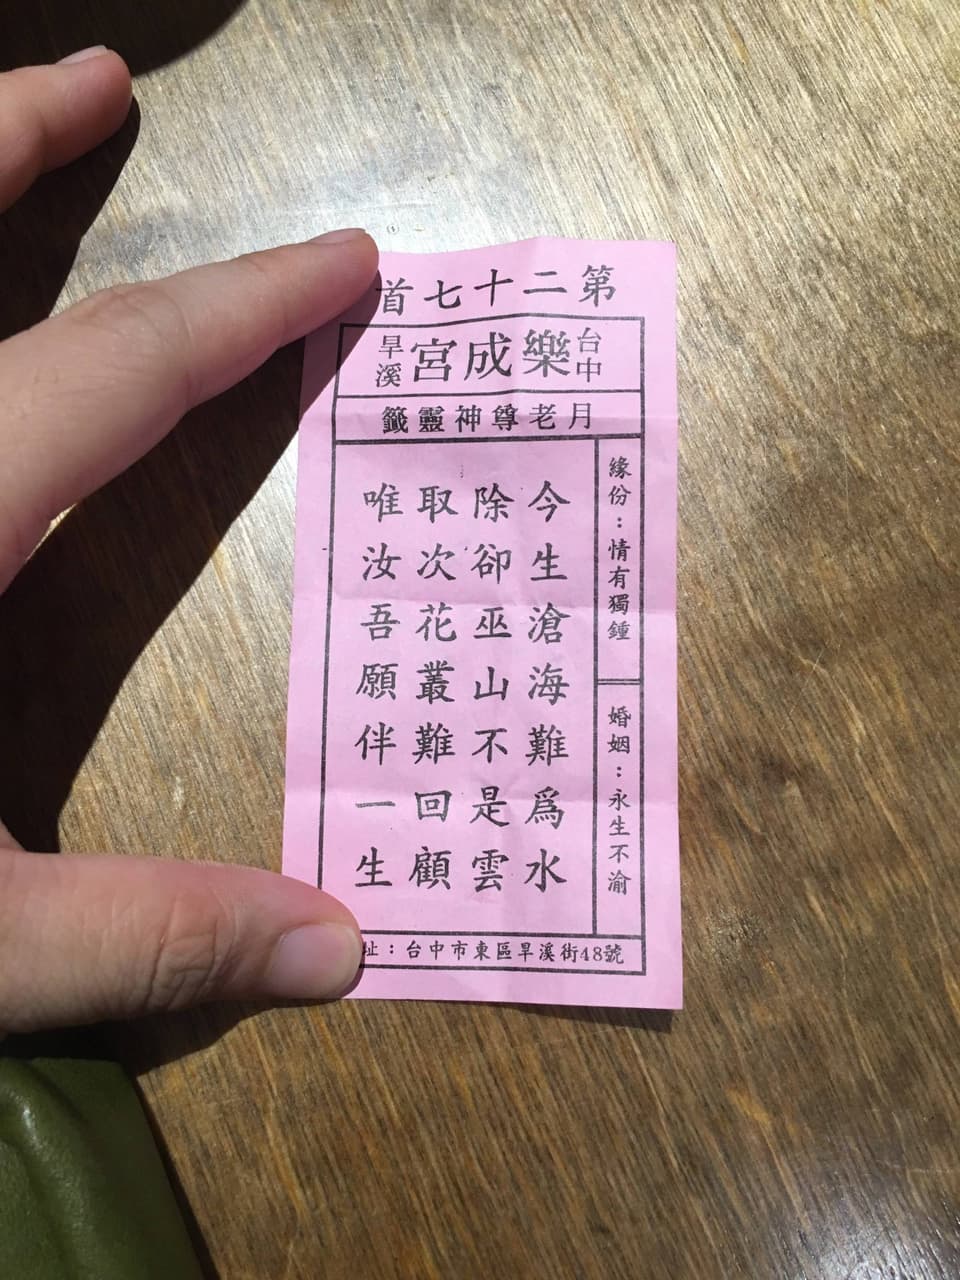 第二十七首
台中 樂成宮 旱溪
月老尊神靈籤
緣份：情有獨鍾
婚姻：永生不渝
今生滄海難爲水
除卻巫山不是雲
取次花叢難回顧
唯汝吾願伴一生
址：台中市東區旱溪街48號